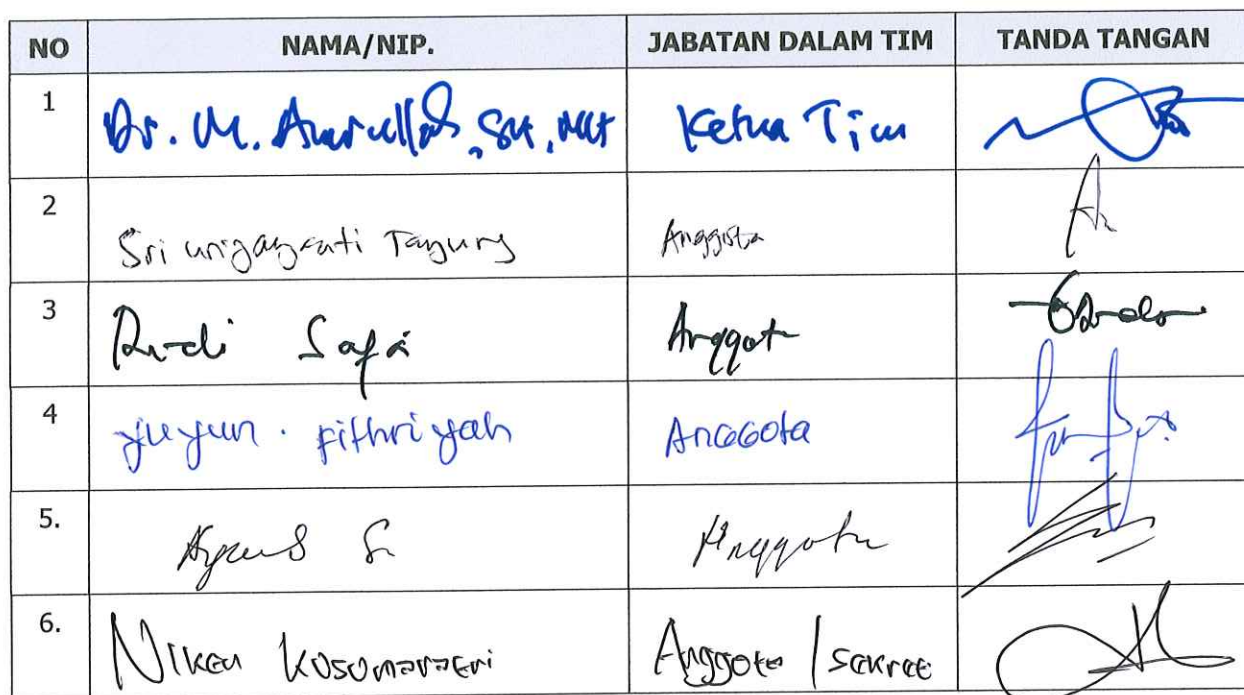 NO NAMA/NIP. JABATAN DALAM TIM TANDA TANGAN
1 Dr. M. Amrullah, SH, MH Ketua Tim
2 Sri Anggota
3 Rudi Anggota
4 yuyun. fithriyah Anggota
5. Agus S Anggota
6. Niken Kusumawati Anggota / Sekret